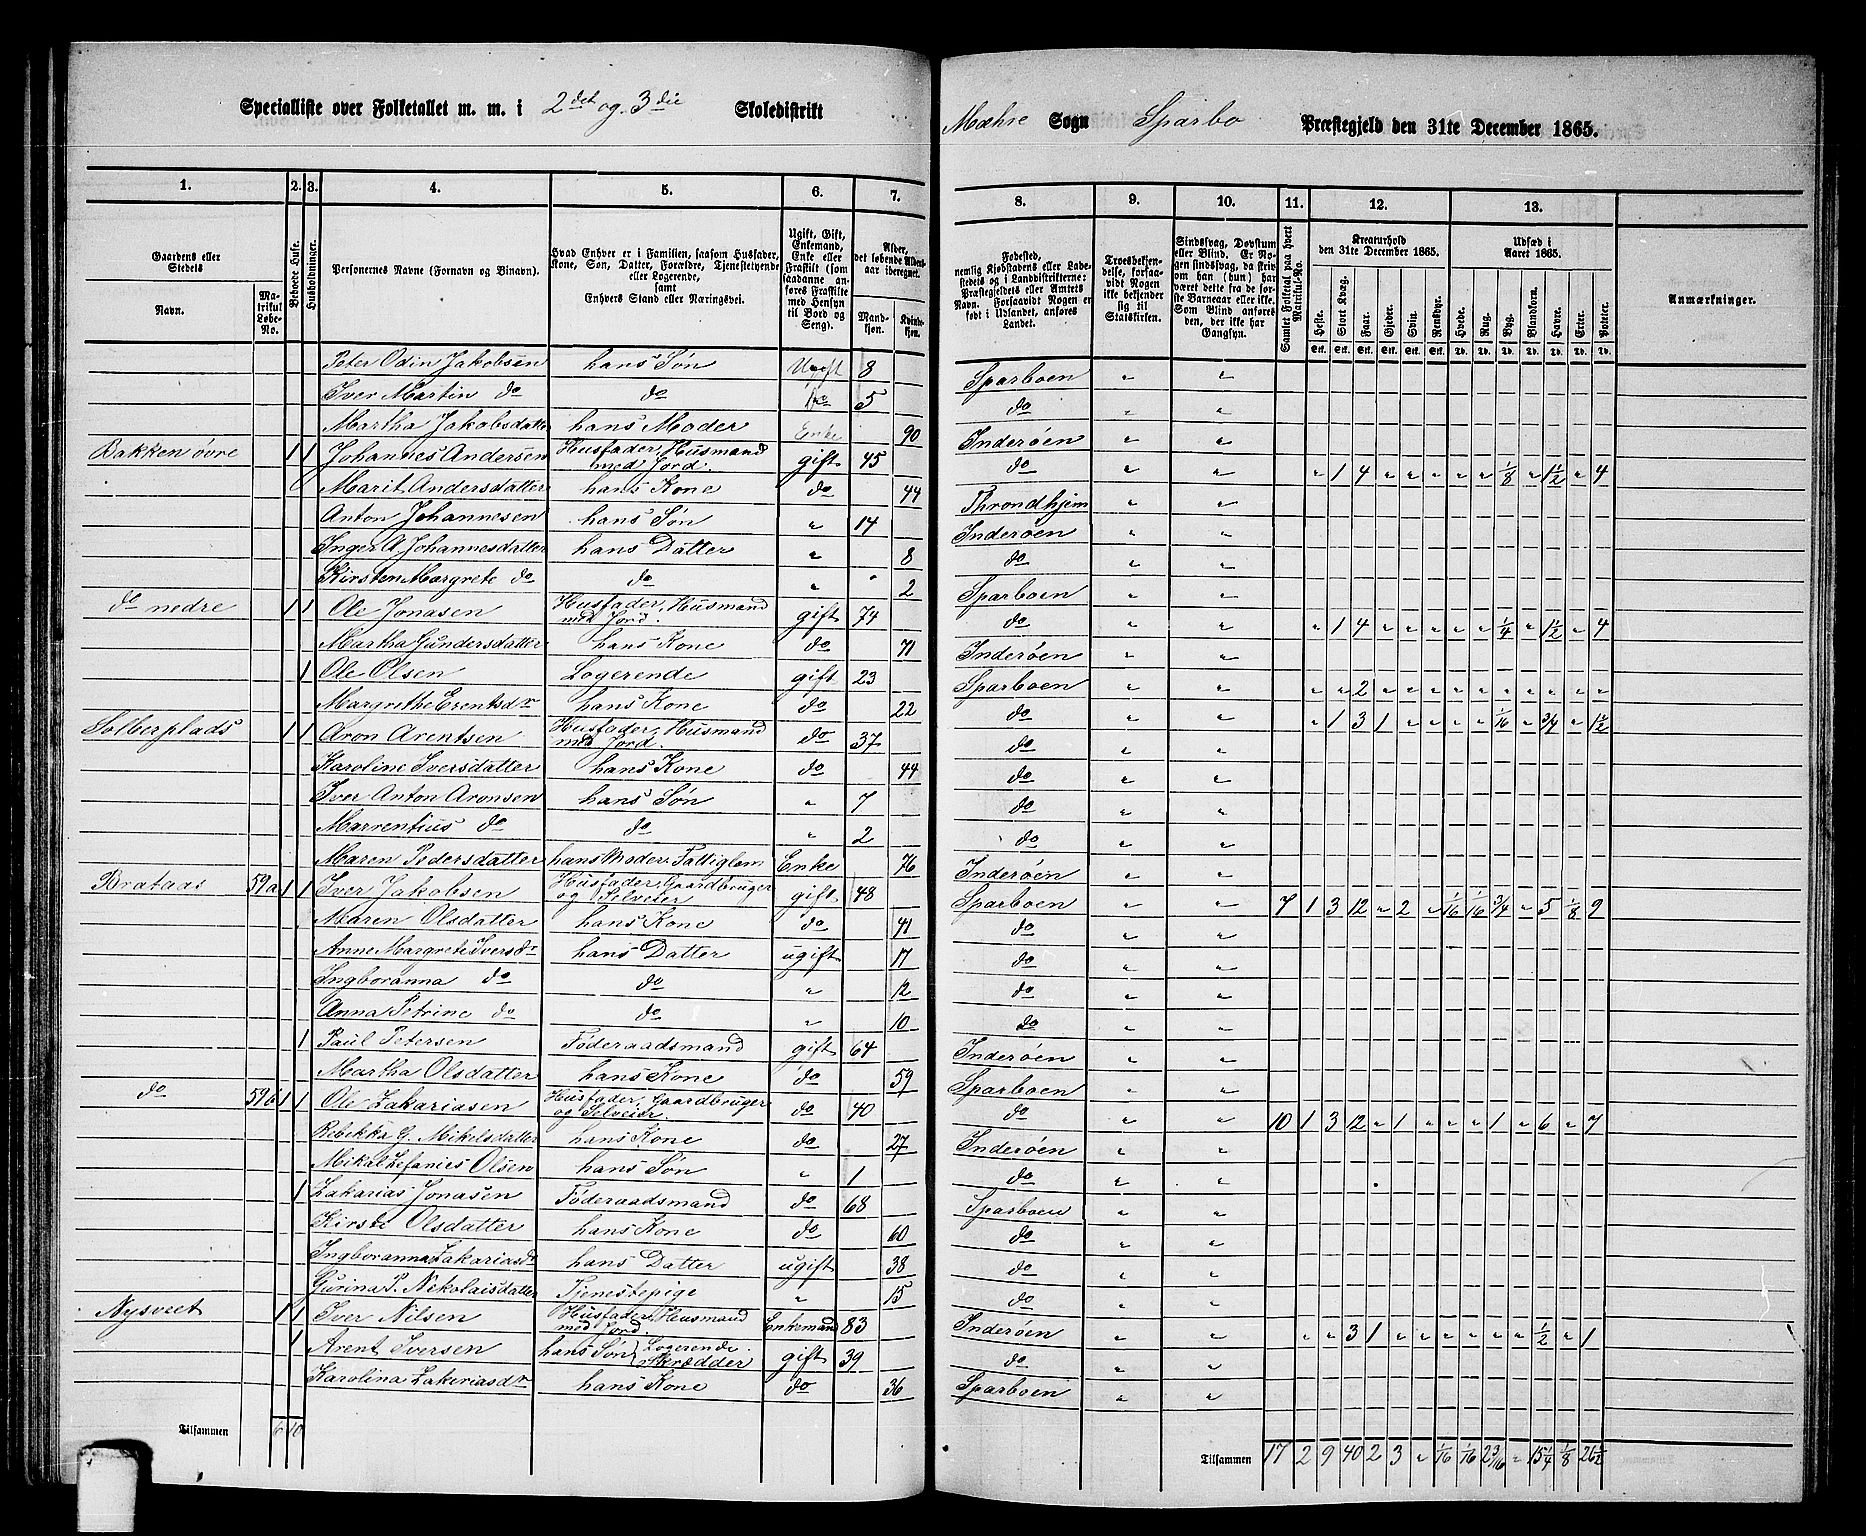 Specialliste over Folketallet m. m. i 2det og 3die Skoledistrikt
Mæhre Sogn Sparbo Præstegjeld den 31te December 1865.
1. 2. 3. 4. 5. 6. 7. 8. 9. 10. 11. 12. 13.
Gaardens eller Stedets Navn. Matrikul Løbe-No. Beboede Huse. Husholdninger. Personernes Navne (Fornavn og Binavn). Hvad Enhver er i Familien, saasom Husfader, Kone, Søn, Datter, Forældre, Tjenestetyende eller Logerende, samt Enhvers Stand eller Næringsvei. Ugift, Gift, Enkemand, Enke eller Fraskilt (saadanne anføres Fraskilte med Hensyn til Bord og Seng). Alder, det løbende Aldersaar iberegnet. Mandkjøn. Kvindekjøn.
Fødested, nemlig Kjøbstadens eller Ladestedets og i Landdistrikterne: Præstegjeldets eller Amtets Navn. Forsaavidt Nogen er født i Udlandet, anføres Landet. Troesbekjendelse, forsaavidt Nogen ikke bekjender sig til Statskirken. Sindssvag, Døvstum eller Blind. Er Nogen sindssvag, da skrives om han (hun) har været dette fra de første Barneaar eller ikke. Som Blind anføres den, der ikke har Gangsyn. Samlet Folketal paa hvert Matrikul-No. Kreaturhold den 31te December 1865. Heste. Stort Kvæg. Faar. Gjeder. Svin. Rensdyr. Udsæd i Aaret 1865. Hvede. Rug. Byg. Blandkorn. Havre. Erter. Poteter. Anmærkninger.
Stk. Stk. Stk. Stk. Stk. Stk. Td. Td. Td. Td. Td. Td. Td.
Peter Odin Jakobsen hans Søn Ugift 8 Sparboen " "
Iver Martin do do do 5 do " "
Martha Jakobsdatter hans Moder Enke 90 Inderøen " "
Bakken øvre 1 1 Johannes Andersen Husfader, Husmand med Jord. gift 45 do " " " 1 4 " " " " " 1/8 " 1 1/2 " 4
Marit Andersdatter hans Kone do 44 Throndhjem " "
Anton Johannesen hans Søn " 14 Inderøen " "
Inger A. Johannesdatter hans Datter " 8 do " "
Kirsten Margrete do do " 2 Sparboen " "
do nedre 1 1 Ole Jonasen Husfader, Husmand med Jord. gift 74 do " " " 1 4 " " " " " 1/4 " 1 1/2 " 4
Martha Gundersdatter hans Kone do 71 Inderøen " "
1 Ole Olsen Logerende gift 23 Sparboen " " " " 2 " " " " " " " " " "
Margrethe Erentsdr hans Kone do 22 do " "
Solbergplads 1 1 Aron Arentsen Husfader, Husmand med Jord. do 37 do " " " 1 3 1 " " " " 1/16 " 3/4 " 1 1/2
Karoline Iversdatter hans Kone do 44 do " "
Iver Anton Aronsen hans Søn " 7 do " "
Marrentius do do " 2 do " "
Maren Pedersdatter hans Moder. Fattiglem Enke 76 Inderøen " "
Brataas 59a 1 1 Iver Jakobsen Husfader, Gaardbruger og Selveier gift 48 Sparboen " " 7 1 3 12 " 2 " 1/16 1/16 3/4 " 5 1/8 9
Maren Olsdatter hans Kone do 41 do " "
Anne Margrete Iversdr hans Datter ugift 17 do " "
Ingboranna do do " 12 do " "
Anna Petrine do do " 10 do " "
1 Paul Petersen Føderaadsmand gift 64 Inderøen " "
Martha Olsdatter hans Kone do 59 Sparboen " "
do 59b 1 1 Ole Zakariasen Husfader, Gaardbruger og Selveier. do 40 do " " 10 1 3 12 " 1 " " " 1 " 6 " 7
Rebekka G. Mikelsdatter hans Kone do 27 Inderøen " "
Mikal Zefanies Olsen hans Søn " 1 do " "
1 Zakarias Jonasen Føderaadsmand do 68 Sparboen " "
Kirste Olsdatter hans Kone do 60 do " "
Ingboranna Zakariasdr hans Datter ugift 38 do " "
Gurina P. Nekolaisdatter Tjenestepige " 15 do " "
Nysveet 1 1 Iver Nilsen Husfader, Husmand med Jord. Enkemand 83 Inderøen " " " " 3 1 " " " " " " 1/2 " 1
1 Arent Iversen hans Søn Logerende. Skrædder gift 39 do " "
Karolina Zakeriasdr hans Kone do 36 Sparboen " "
Tilsammen 6 10 Tilsammen 17 2 9 40 2 3 " 1/16 1/16 2 3/16 " 15 1/4 1/8 26 1/2